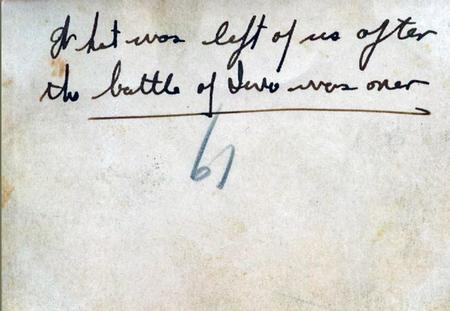 What was left of us after
the battle of Iwo was over
61